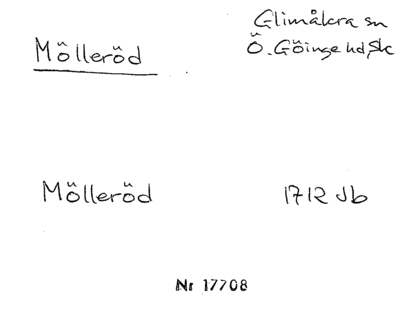 Glimåkra sn
Mölleröd
Ö. Göinge hd, Sk
Mölleröd 1712 Jb
Nr 17708